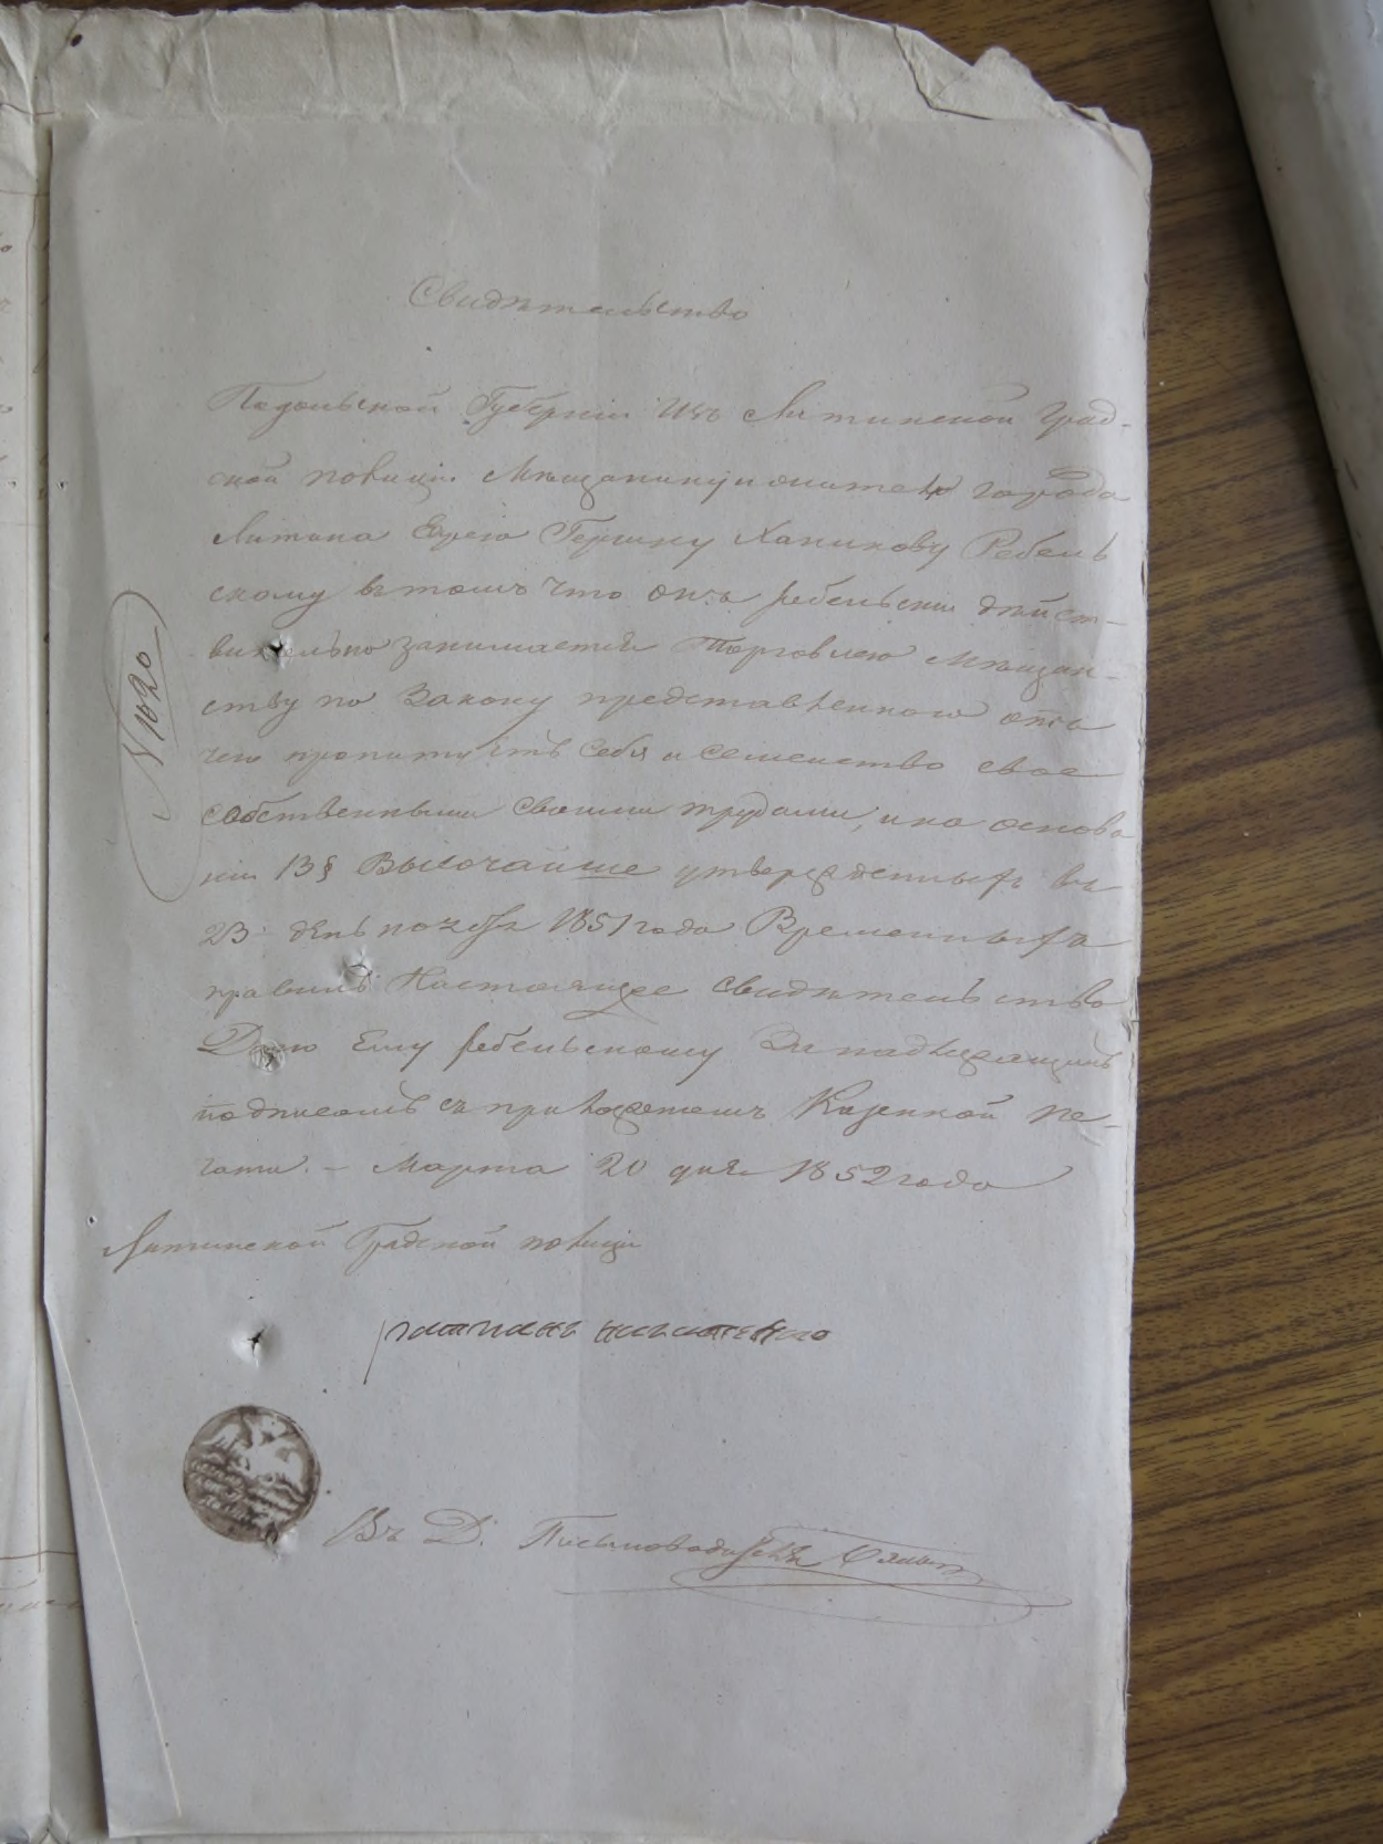 Свидѣтельство
Подольской Губерніи Изъ Литинской Град-
ской полиціи Мѣщанину и жителю города
Литина Еврею Гершку Хаимову Ребель
скому въ томъ что онъ Ребельскій дѣйст-
вительно занимается Торговлею Мѣщан-
ству по Закону представленною отъ
чего пропитуетъ себя и семейство свое
собственными своими трудами, и на основа
ніи 13 § Высочайше утвержденныхъ въ
23 день ноября 1851 года Временныхъ
правилъ Настоящее свидѣтельство
Дано Ему Ребельскому За надлежащимъ
подписомъ съ приложеніемъ Казенной пе-
чати. – Марта 20 дня 1852 года
N 1020
Литинской Градской полиціи
Въ Д. Письмоводителя